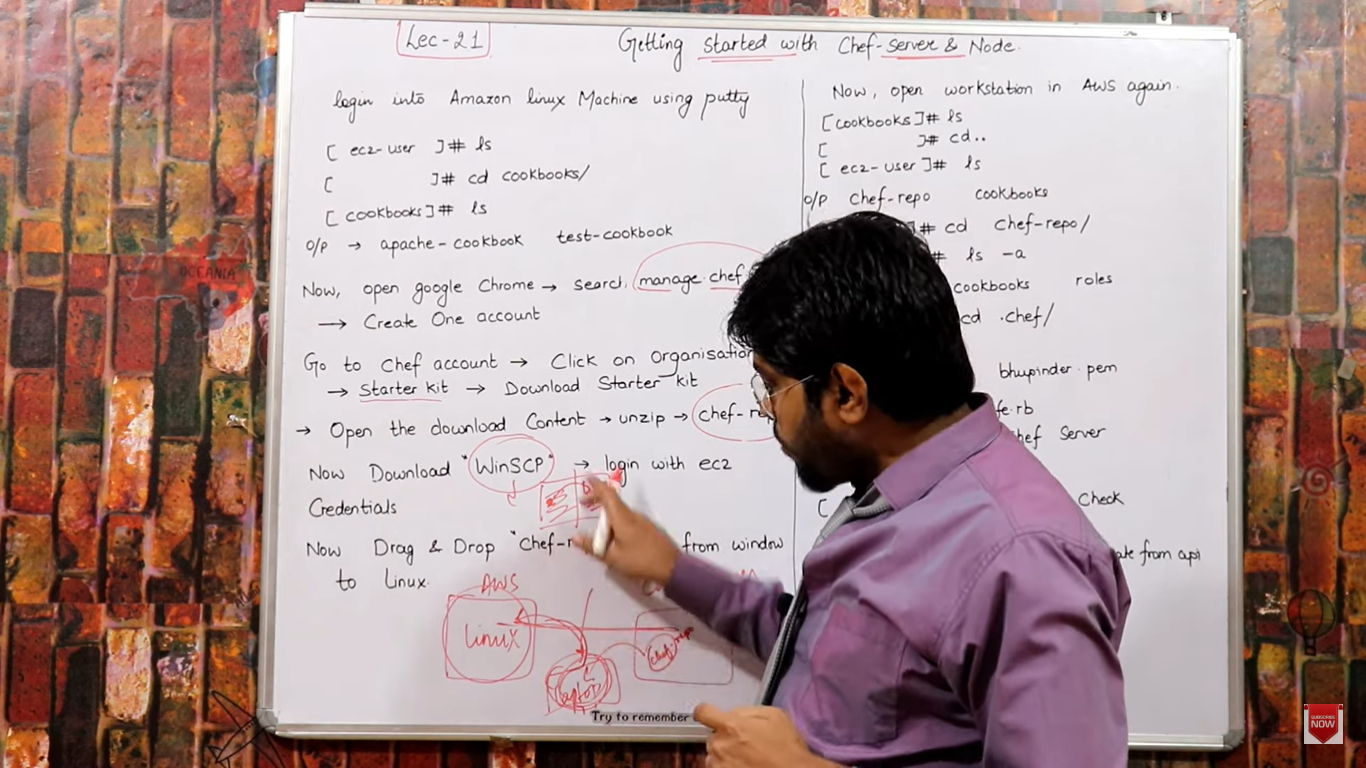 Lec-21
Getting started with Chef-Server & Node.
login into Amazon linux Machine using putty
[ ec2-user ]# ls
[ ]# cd cookbooks/
[ cookbooks ]# ls
O/P → apache-cookbook test-cookbook
Now, open google Chrome → search manage.chef
→ Create One account
Go to Chef account → Click on Organisation
→ Starter kit → Download Starter kit
→ Open the download Content → unzip → chef-re
Now Download "WinSCP" → login with ec2
Credentials
Now Drag & Drop "Chef-r from window
to Linux.
AWS
Linux
Laptop
Chef-repo
Now, open workstation in AWS again.
[cookbooks]# ls
[ ]# cd..
[ ec2-user ]# ls
O/P chef-repo cookbooks
]# cd chef-repo/
# ls -a
cookbooks roles
cd .chef/
bhupinder.pem
fe.rb
hef Server
[ Check
ate from api
Try to remember
OCEANIA
SUBSCRIBE
NOW